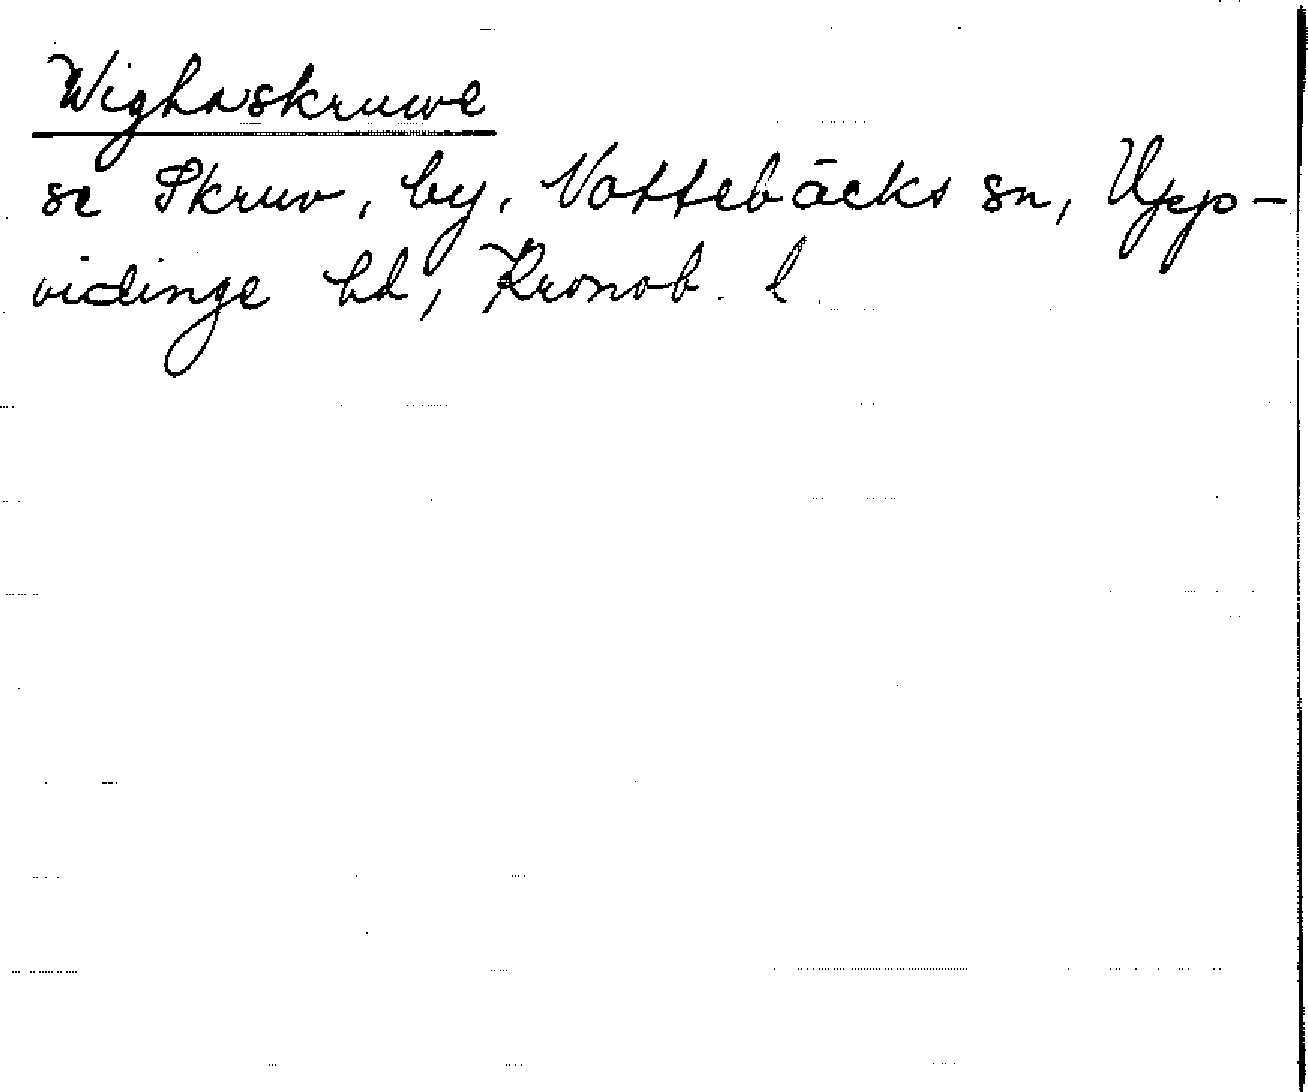 Wighnskruwe
se Skruv, by, Nottebäcks sn, Upp-
vidinge hd, Kronob. l.